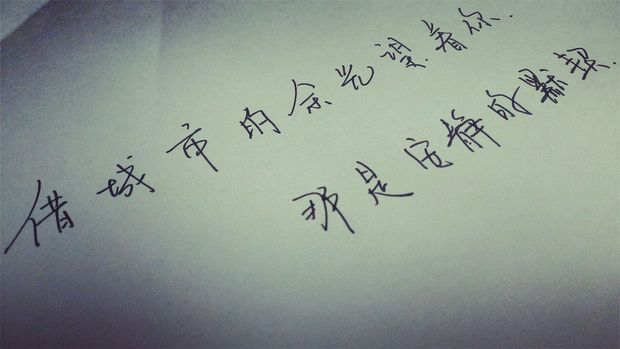 借城市的余光望着你.
那是安静的默契.